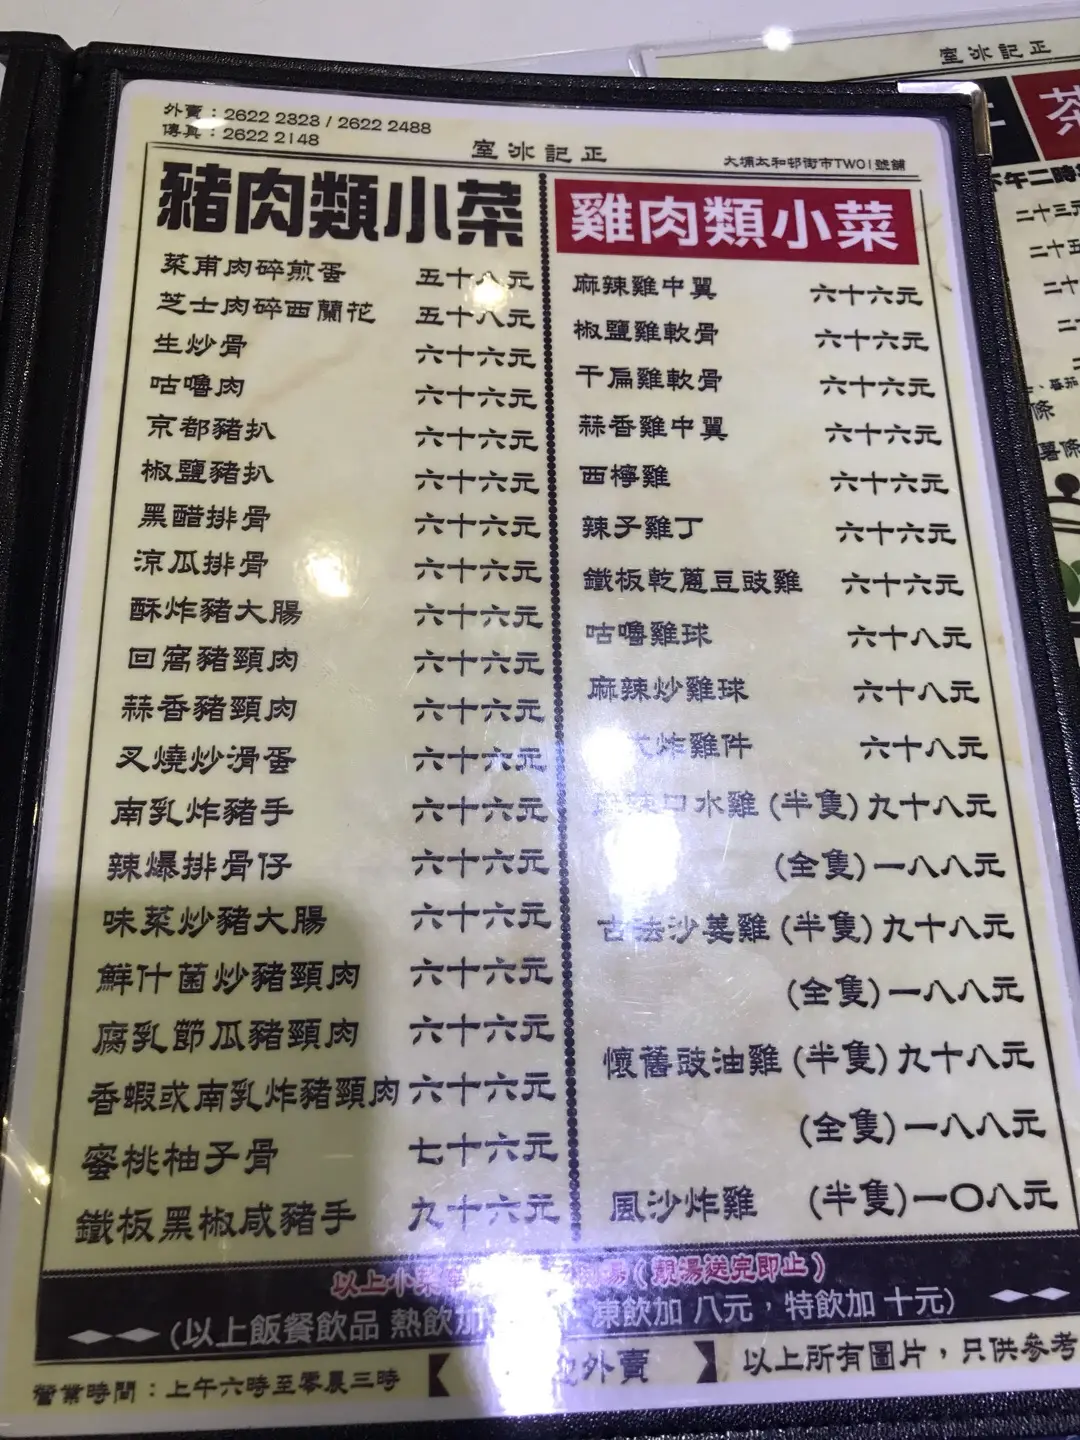 外賣：2622 2323 / 2622 2488
傳真：2622 2148
室冰記正
大埔太和邨街市TW01號舖
豬肉類小菜
菜甫肉碎煎蛋 五十八元
芝士肉碎西蘭花 五十八元
生炒骨 六十六元
咕嚕肉 六十六元
京都豬扒 六十六元
椒鹽豬扒 六十六元
黑醋排骨 六十六元
涼瓜排骨 六十六元
酥炸豬大腸 六十六元
回窩豬頸肉 六十六元
蒜香豬頸肉 六十六元
叉燒炒滑蛋 六十六元
南乳炸豬手 六十六元
辣爆排骨仔 六十六元
味菜炒豬大腸 六十六元
鮮什菌炒豬頸肉 六十六元
腐乳節瓜豬頸肉 六十六元
香蝦或南乳炸豬頸肉 六十六元
蜜桃柚子骨 七十六元
鐵板黑椒咸豬手 九十六元
雞肉類小菜
麻辣雞中翼 六十六元
椒鹽雞軟骨 六十六元
干扁雞軟骨 六十六元
蒜香雞中翼 六十六元
西檸雞 六十六元
辣子雞丁 六十六元
鐵板乾蔥豆豉雞 六十六元
咕嚕雞球 六十八元
麻辣炒雞球 六十八元
炸雞件 六十八元
口水雞 (半隻) 九十八元
(全隻) 一八八元
古法沙姜雞 (半隻) 九十八元
(全隻) 一八八元
懷舊豉油雞 (半隻) 九十八元
(全隻) 一八八元
風沙炸雞 (半隻) 一〇八元
以上小菜 湯 (靚湯送完即止)
(以上飯餐飲品 熱飲加 凍飲加 八元，特飲加 十元)
營業時間：上午六時至零晨三時
外賣
以上所有圖片，只供參考
室冰記正
茶
下午二時
二十三元
二十五
二十
條
薯條